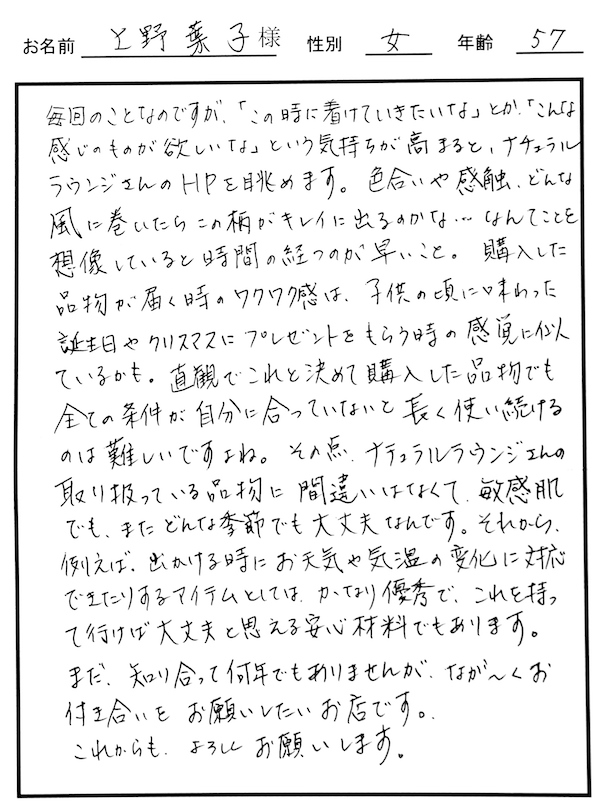 お名前 上野葉子様 性別 女 年齢 57
毎回のことなのですが、「この時に着けていきたいな」とか、「こんな
感じのものが欲しいな」という気持ちが高まると、ナチュラル
ラウンジさんのHPを眺めます。色合いや感触、どんな
風に巻いたらこの柄がキレイに出るのかな…なんてことを
想像していると時間の経つのが早いこと。購入した
品物が届く時のワクワク感は、子供の頃に味わった
誕生日やクリスマスにプレゼントをもらう時の感覚に似
ているかも。直観でこれと決めて購入した品物でも
全ての条件が自分に合っていないと長く使い続ける
のは難しいですよね。その点、ナチュラルラウンジさんの
取り扱っている品物に間違いはなくて、敏感肌
でも、またどんな季節でも大丈夫なんです。それから、
例えば、出かける時にお天気や気温の変化に対応
できたりするアイテムとしては、かなり優秀で、これを持っ
て行けば大丈夫と思える安心材料でもあります。
まだ、知り合って何年でもありませんが、なが〜くお
付き合いをお願いしたいお店です。
これからも、よろしくお願いします。